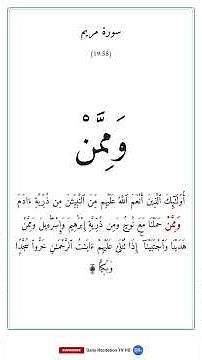 سورة مريم
(19:58)
وَمِمَّنْ
أُو۟لَـٰٓئِكَ ٱلَّذِينَ أَنْعَمَ ٱللَّهُ عَلَيْهِم مِّنَ ٱلنَّبِيِّـۧنَ مِن ذُرِّيَّةِ ءَادَمَ
وَمِمَّنْ حَمَلْنَا مَعَ نُوحٍ وَمِن ذُرِّيَّةِ إِبْرَٰهِيمَ وَإِسْرَٰٓءِيلَ وَمِمَّنْ
هَدَيْنَا وَٱجْتَبَيْنَآ ۚ إِذَا تُتْلَىٰ عَلَيْهِمْ ءَايَـٰتُ ٱلرَّحْمَـٰنِ خَرُّوا۟ سُجَّدًا
وَبُكِيًّا ۩
SUBSCRIBE Quran Recitation TV HD